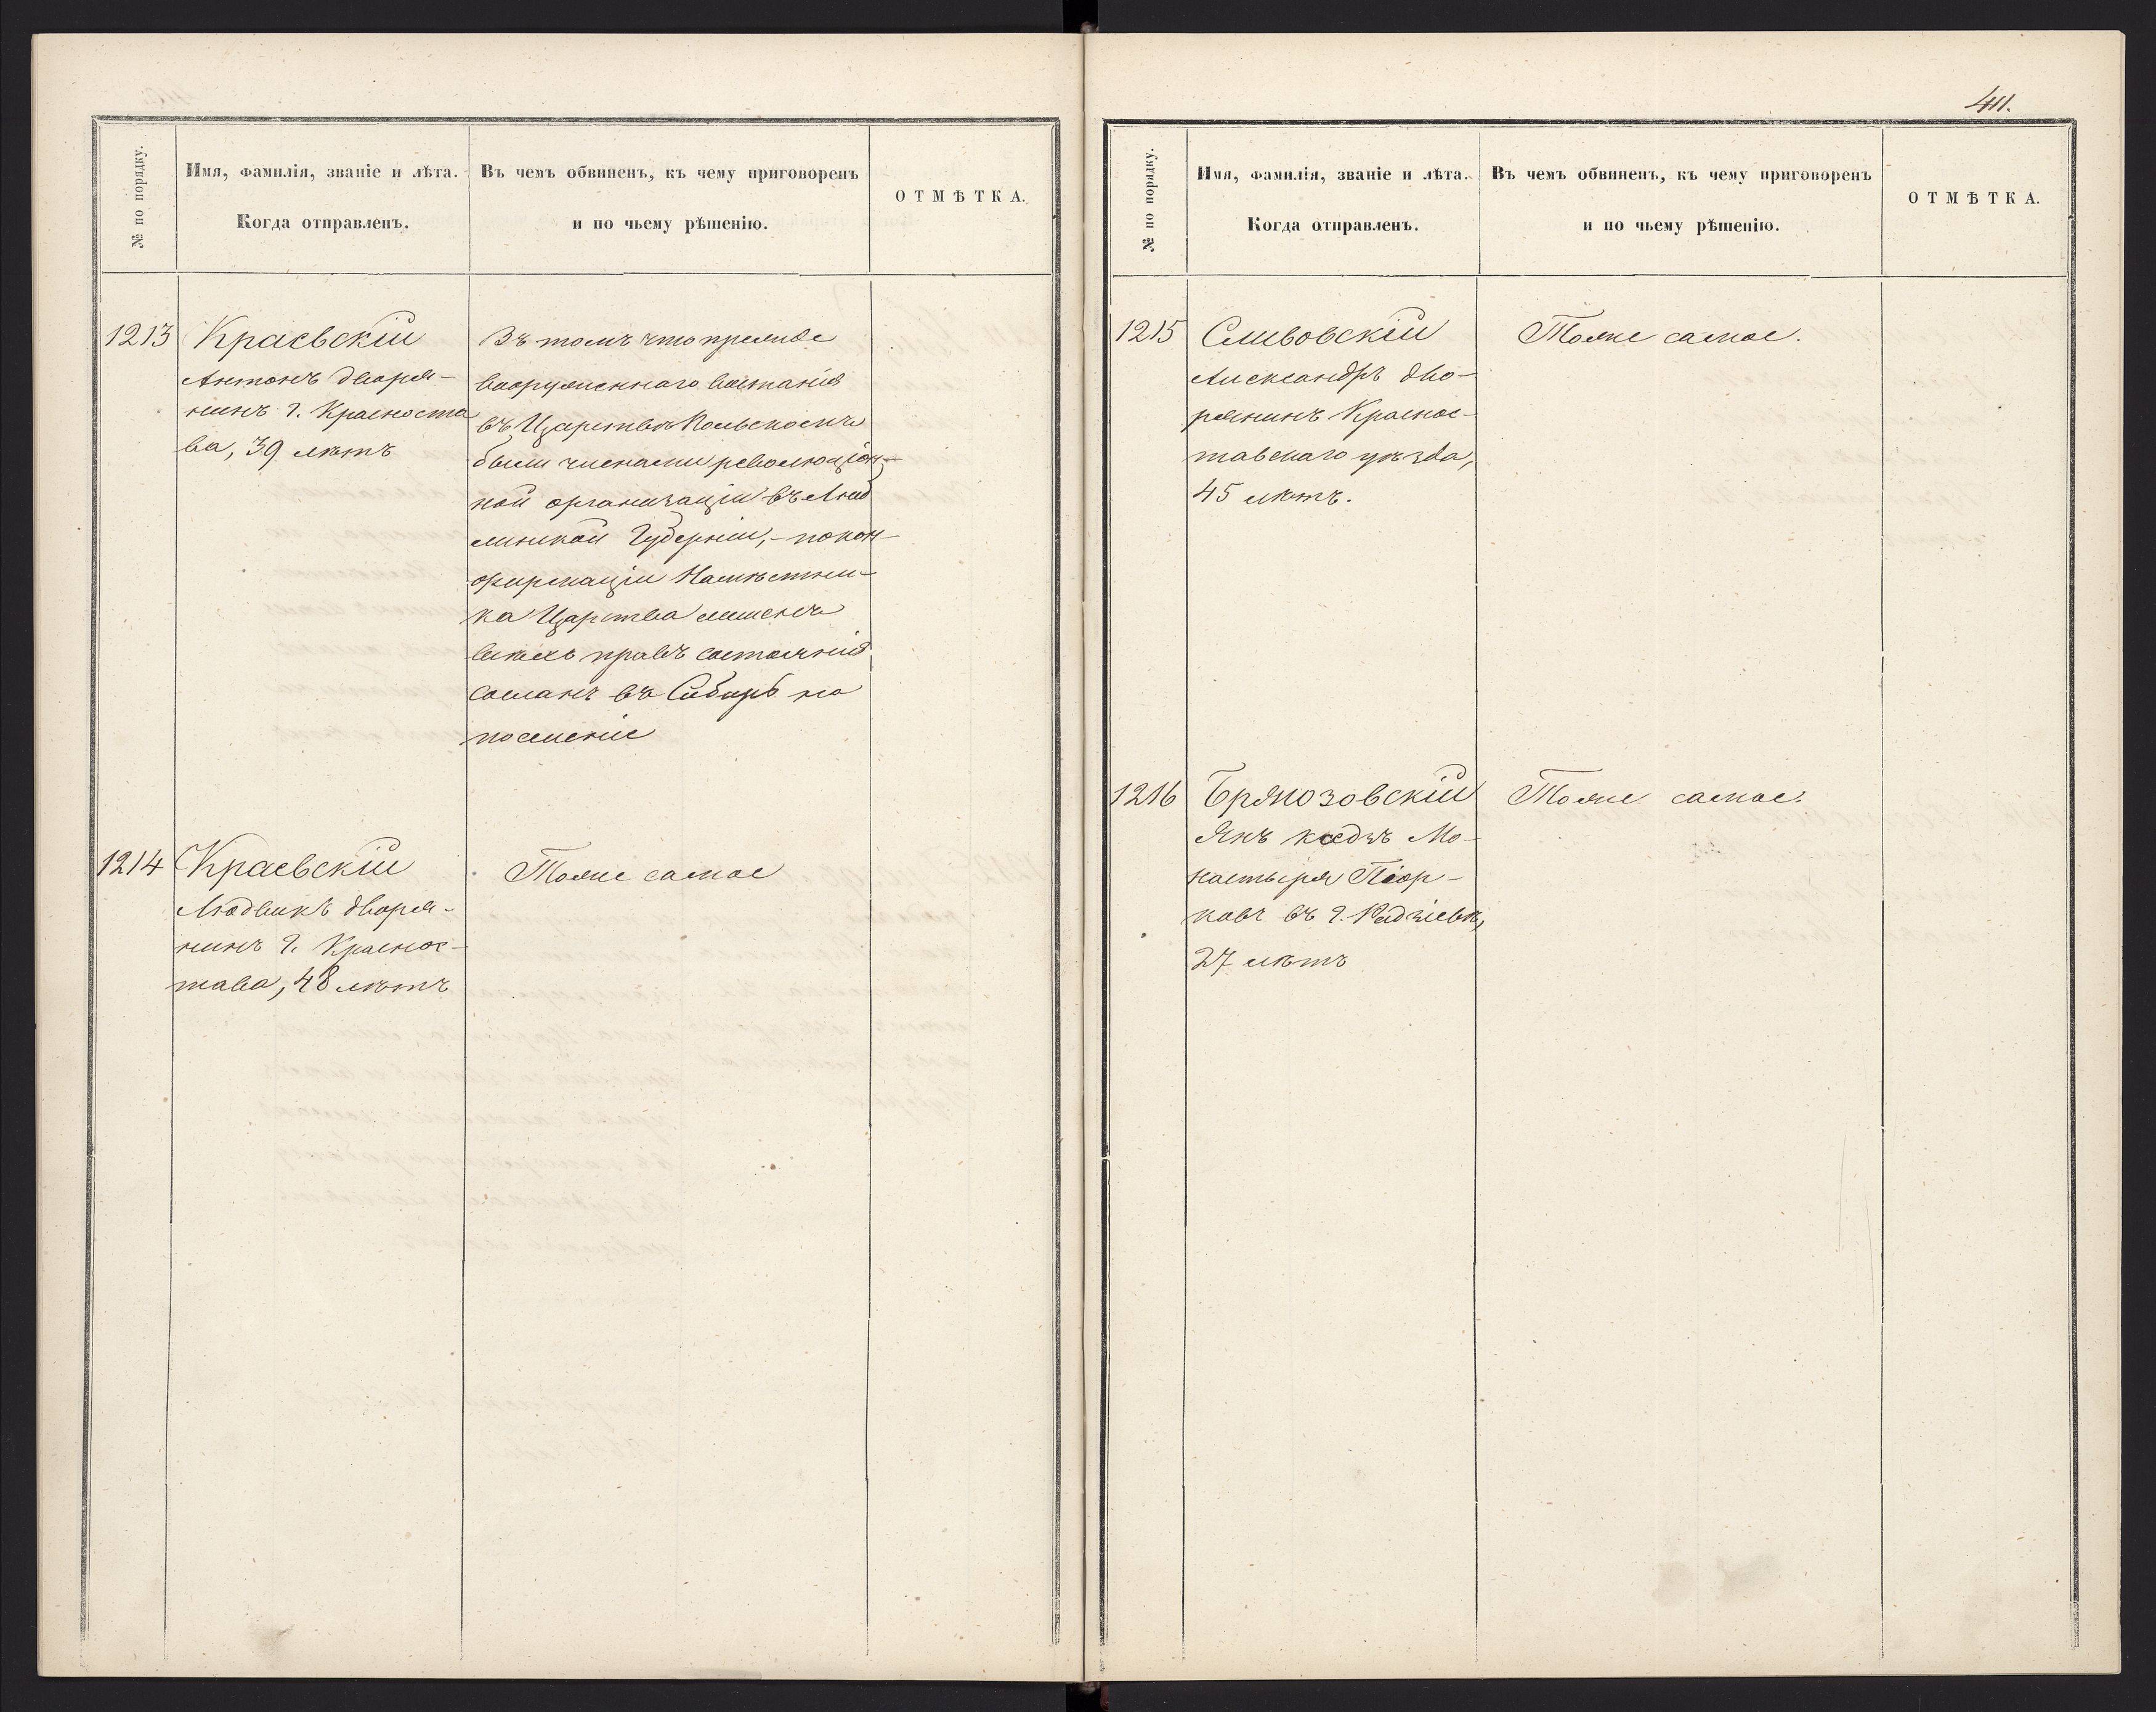 № по порядку.
Имя, фамилія, званіе и лѣта.
Когда отправленъ.
Въ чемъ обвиненъ, къ чему приговоренъ
и по чьему рѣшенію.
ОТМѢТКА.
1213
Краевскій
Антонъ дворя-
нинъ г. Красноста
ва, 39 лѣтъ
Въ томъ что прежде
вооруженнаго востанія
въ Царствѣ Польскомъ
были членами революціон-
ной организаціи въ Люб
линской Губерніи, - по кон-
фирмаціи Намѣстни-
ка Царства лишенъ
всѣхъ правъ состоянія
сосланъ въ Сибирь на
поселеніе
1214
Краевскій
Людвикъ дворя-
нинъ г. Краснос-
тава, 48 лѣтъ
Тоже самое
411.
№ по порядку.
Имя, фамилія, званіе и лѣта.
Когда отправленъ.
Въ чемъ обвиненъ, къ чему приговоренъ
и по чьему рѣшенію.
ОТМѢТКА.
1215
Сливовскій
Александръ дво-
рянинъ Краснос-
тавскаго уѣзда,
45 лѣтъ.
Тоже самое.
1216
Бржозовскій
Янъ кседзъ Мо-
настыря Піор-
ковъ въ г. Радзіевѣ,
27 лѣтъ
Тоже самое.